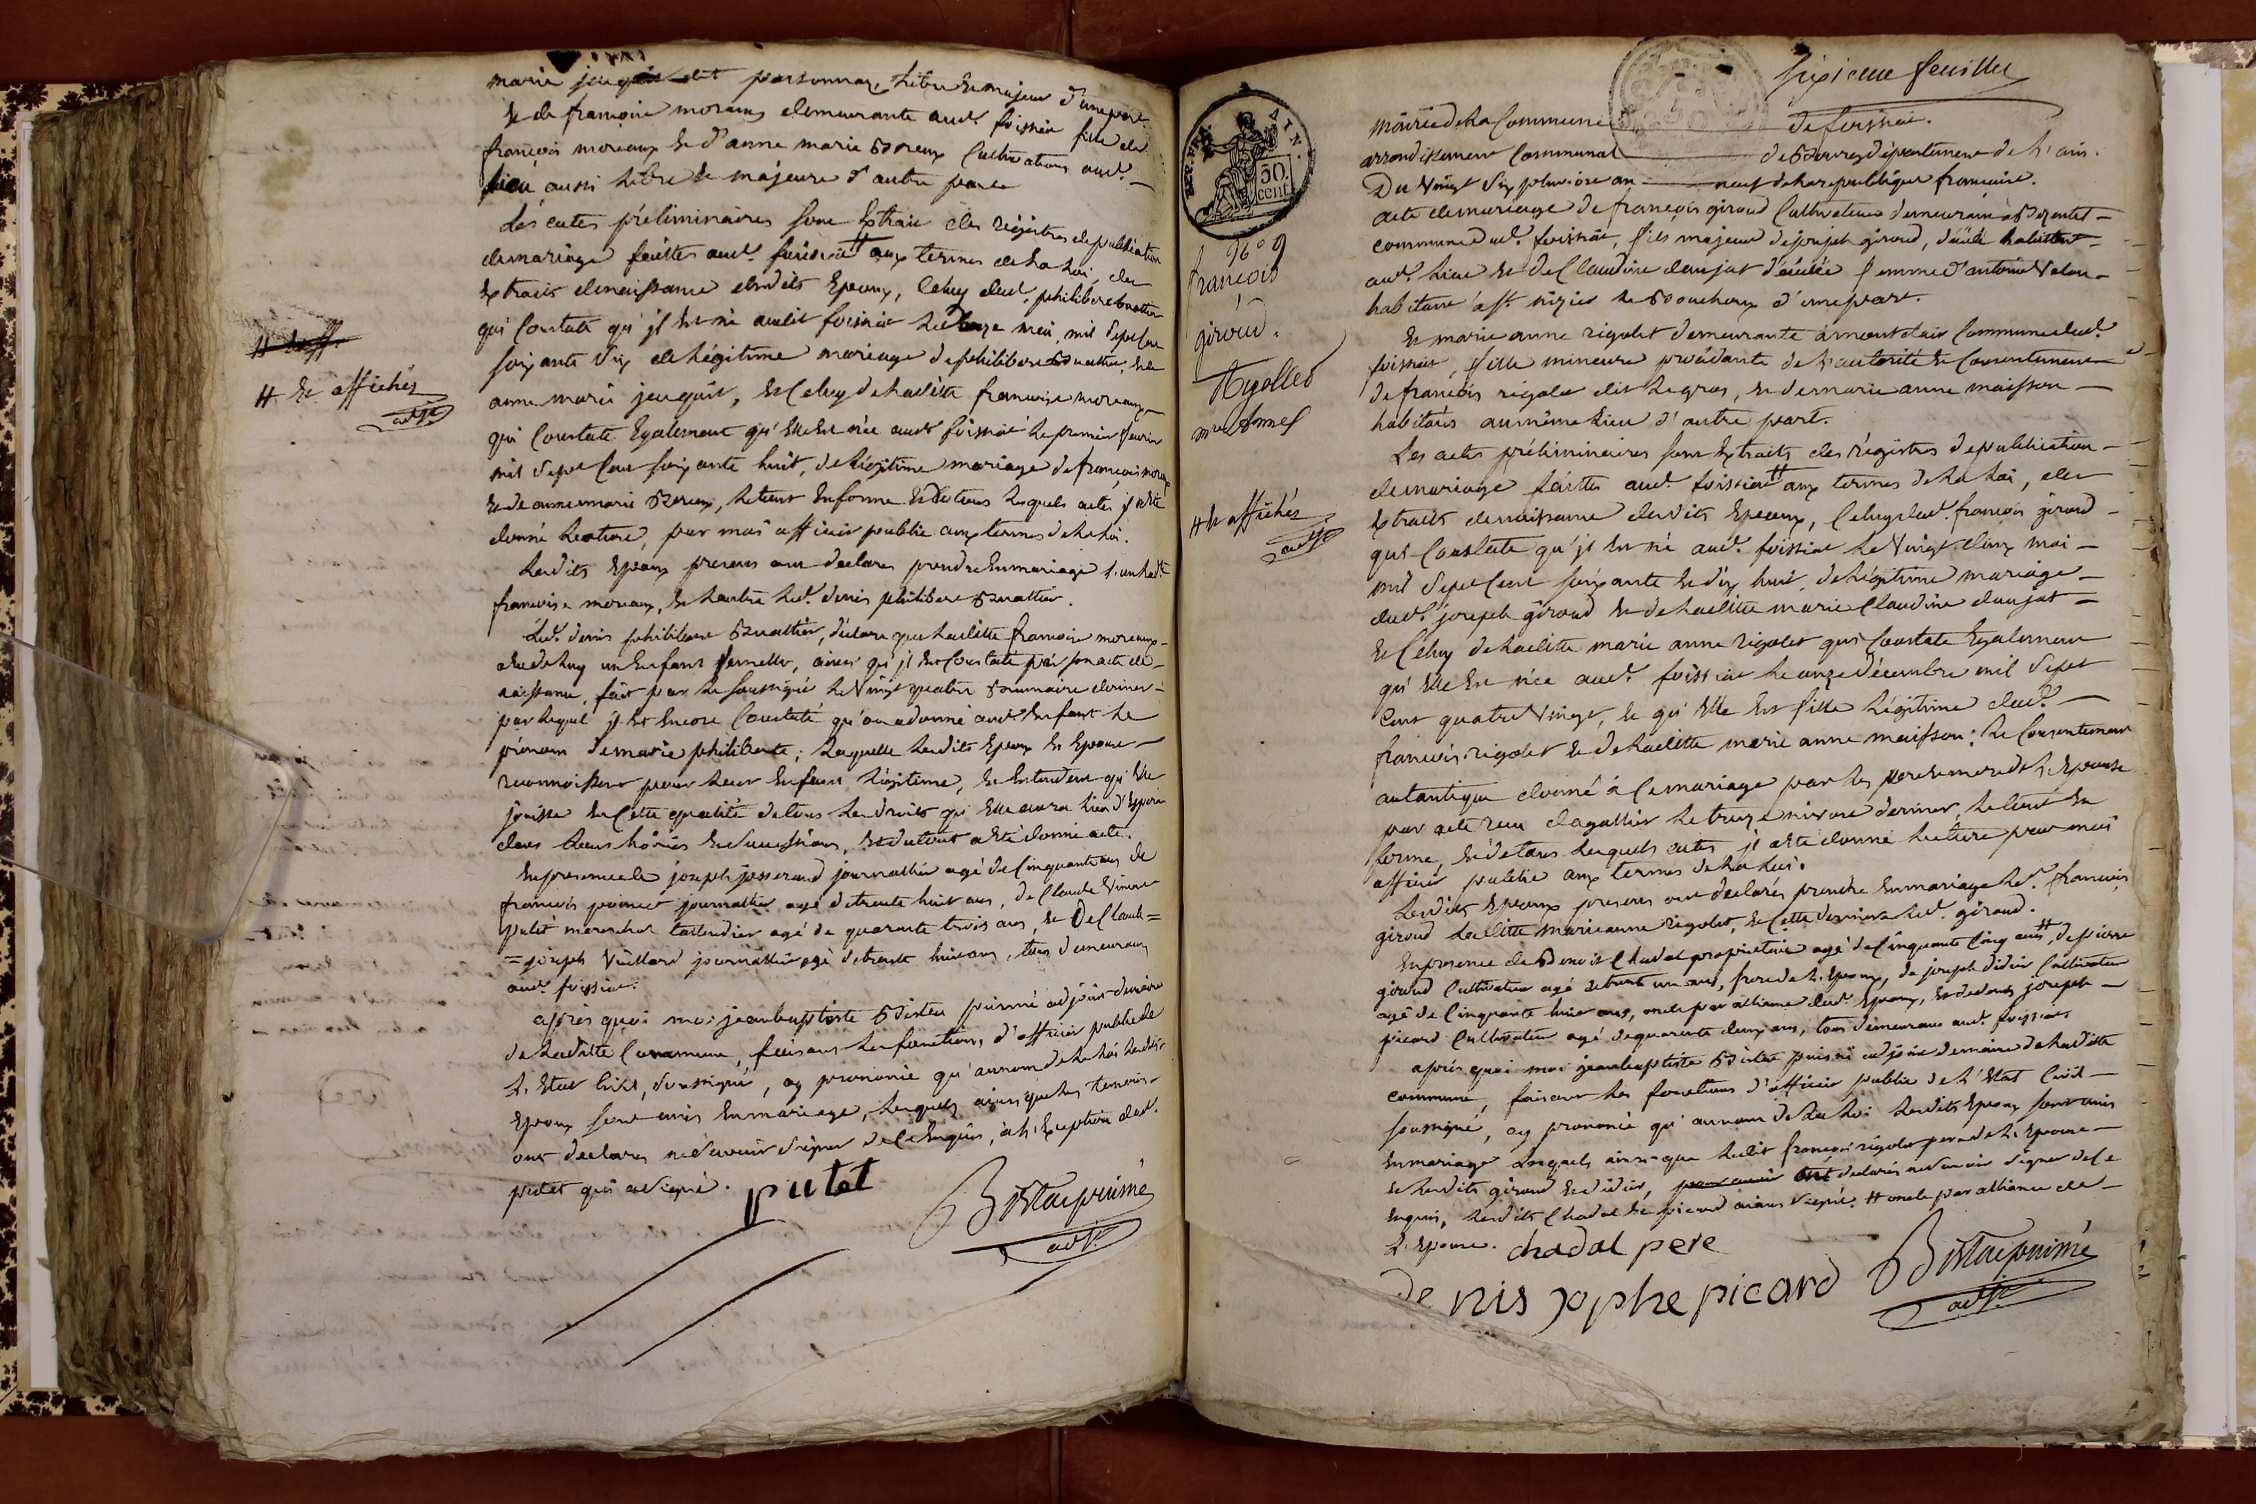 marie jenquit dit personnaz, libre et majeur d'une part.
Et de françoise moreaux demeurante aud. foissiat fille de
françois moreaux et d'anne marie Boreux Cultivateurs aud.
lieu aussi libre et majeure d'autre part
Les actes préliminaires sont Extrait des régistres de publication
de mariage faittes aud. foissiat # aux termes de la loi, des
Extraits de naissance desdits Epoux, Celuy dud. philibert
qui Constate qu'il Est né audit foissiat le douze mai, mil sept Cent
soixante six de légitime mariage de philibert et de
anne marie jenquit, et Celuy de laditte françoise moreaux
qui Constate Egalement qu'elle Est née aud. foissiat le premier fevrier
mil sept Cent soixante huit, de légitime mariage de françois moreaux
et de anne marie Boreux, le tout En forme Et de tous lesquels actes il a Eté
donné lecture, par moi officier public aux termes de la loi.
Lesdits Epoux présens ont déclarés prendre En mariage l'un laditte
françoise moreaux, et l'autre led. denis philibert
Led. denis philibert, déclare que laditte françoise moreaux
a Eu de luy un Enfant femelle, ainsi qu'il Est Constaté par son acte de
naissance, fait par le soussigné le Vingt quatre Brumaire dernier
par lequel il Est Encore Constaté qu'on a donné aud. Enfant le
prénom de marie philiberte; laquelle lesdits Epoux Et Epouse
reconnoissent pour leur Enfant légitime, et Entendent qu'elle
jouisse En Cette qualité de tous les droits qu'elle aura lieu d'Espérer
dans leurs hoiries Et successions, Et du tout a Eté donné acte.
En presence de joseph josserand journallier agé de Cinquante ans de
françois journallier agé de trente huit ans, de Claude Vincent
putet marechal taillandier agé de quarante trois ans, et De Claude=
=joseph Vuillard journallier agé de trente huit ans, tous demeurans
aud. foissiat.
après quoi moi jean baptiste Bistac puisné adjoint du maire
de laditte Commune, faisant les fonctions d'officier public de
l'Etat Civil, soussigné, ay prononcé qu'au nom de la loi lesdits
Epoux sont unis En mariage, lesquels ainsi que les temoins
ont déclarés ne savoir signer de Ce Enquis, à l'Exception dud.
putet qui a signé.
putet
Bistac puisné
adjt.
# Et affichés
adjt.
sixieme feuillet
RÉP. FRA. AIN.
50. cent.
N° 9
françois
giroud.
Rigollet
mie Anne
mairie de la Commune de foissiat.
arrondissement Communal de Bourg département de l'ain.
Du Vingt six pluviose an neuf de la republique française.
acte de mariage de françois giroud Cultivateur demeurant à
commune dud. foissiat, fils majeur de joseph giroud, habitant
aud. lieu et de Claudine danjat femme d'antoine
habitant à st. nizier le Bouchoux d'une part.
Et marie anne rigolet demeurante à montclair Commune dud.
foissiat, fille mineure procédante de l'autorité Et Consentement
de françois rigolet dit legras, et de marie anne maisson
habitans au même lieu d'autre part.
Les actes préliminaires sont Extraits des régistres de publication
de mariage faittes aud. foissiat # aux termes de la loi, des
Extraits de naissance desdits Epoux, Celuy dud. françois giroud
qui Constate qu'il Est né aud. foissiat le Vingt deux mai
mil sept Cent soixante et dix huit, de légitime mariage
dud. joseph giroud et de laditte marie Claudine danjat
Et Celuy de laditte marie anne rigolet qui Constate Egalement
qu'elle Est née aud. foissiat le onze décembre mil sept
Cent quatre Vingt, et qu'elle Est fille légitime dud.
françois rigolet et de laditte marie anne maisson; Le Consentement
autantique donné à Ce mariage par les pere et mere de l'Epouse
par acte reçu dagallier le treize nivose dernier, le tout En
forme, Et de tous lesquels actes il a Eté donné lecture par moi
officier public aux termes de la loi.
Lesdits Epoux presens ont déclarés prendre En mariage led. françois
giroud laditte marie anne rigolet, Et Cette derniere led. giroud.
En presence de Benoit Chadal proprietaire agé de Cinquante Cinq ans #, de pierre
giroud Cultivateur agé de trente un ans, frere de l'Epoux, de joseph didier Cultivateur
agé de Cinquante huit ans, oncle par alliance dud. Epoux, Et de denis joseph
picard Cultivateur agé de quarante deux ans, tous demeurans aud. foissiat
après quoi moi jean baptiste Bistac puisné adjoint du maire de laditte
commune, faisant les fonctions d'officier public de l'Etat Civil
soussigné, ay prononcé qu'au nom de la loi lesdits Epoux sont unis
En mariage lesquels ainsi que ledit françois rigolet pere de l'Epouse
et lesdits giroud et didier, ont déclarés ne savoir signer de Ce
Enquis, lesdits Chadal et picard aiant signé. # oncle par alliance de
l'Epouse. chadal pere
denis jophe picard
Bistac puisné
adjt.
# Et affichés
adjt.